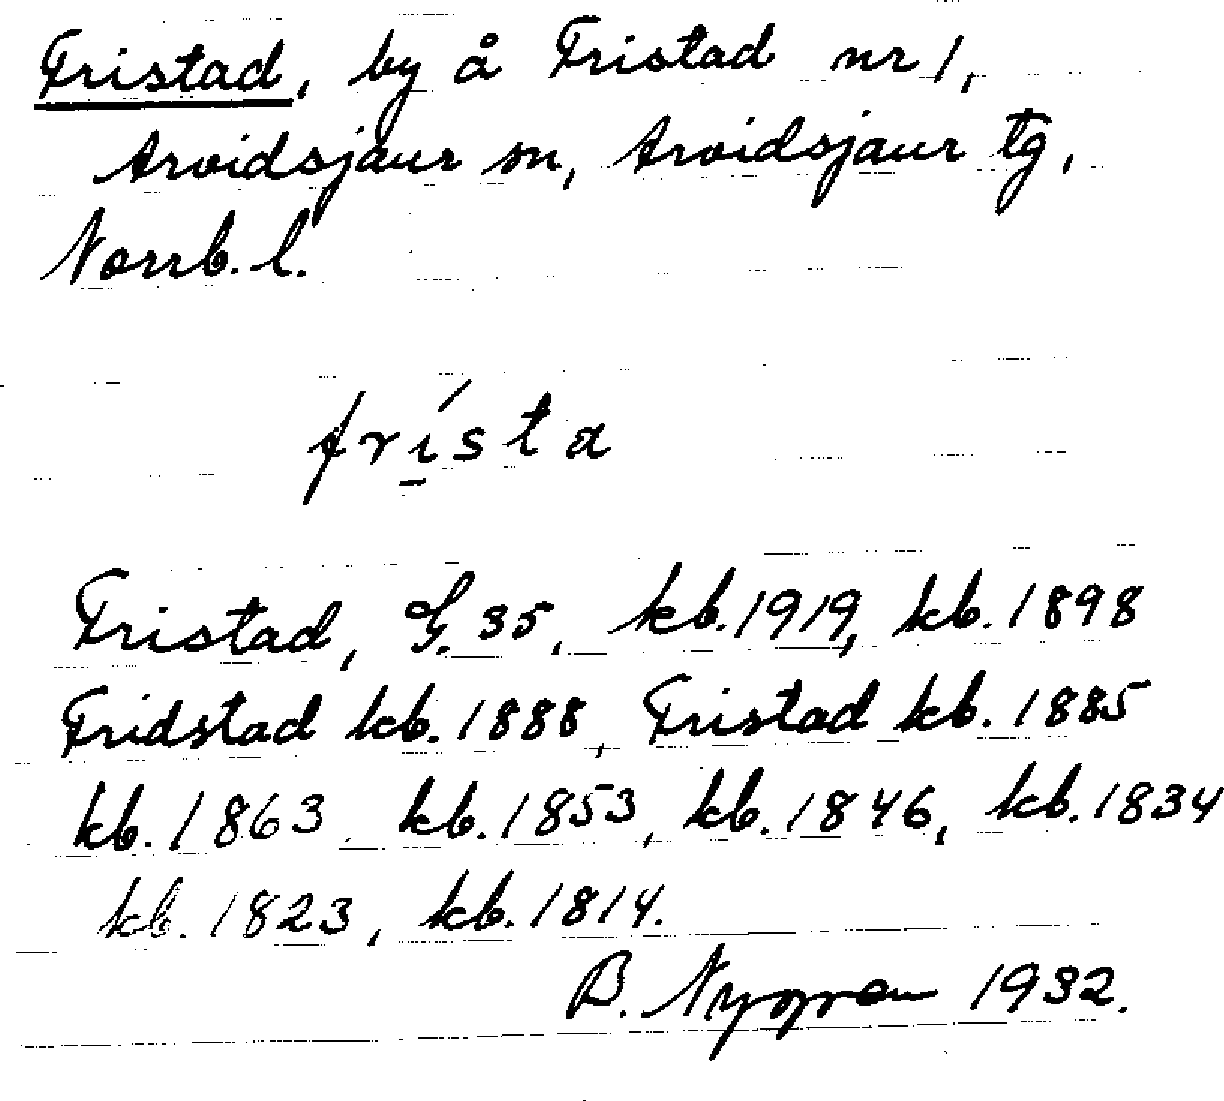 Fristad, by å Fristad nr 1,
Arvidsjaur sn, Arvidsjaur tg,
Norrb. l.
frí̱sta
Fristad, G. 35, kb. 1919, kb. 1898
Fridstad kb. 1888, Fristad kb. 1885
kb. 1863, kb. 1853, kb. 1846, kb. 1834
kb. 1823, kb. 1814.
B. Nygren 1932.